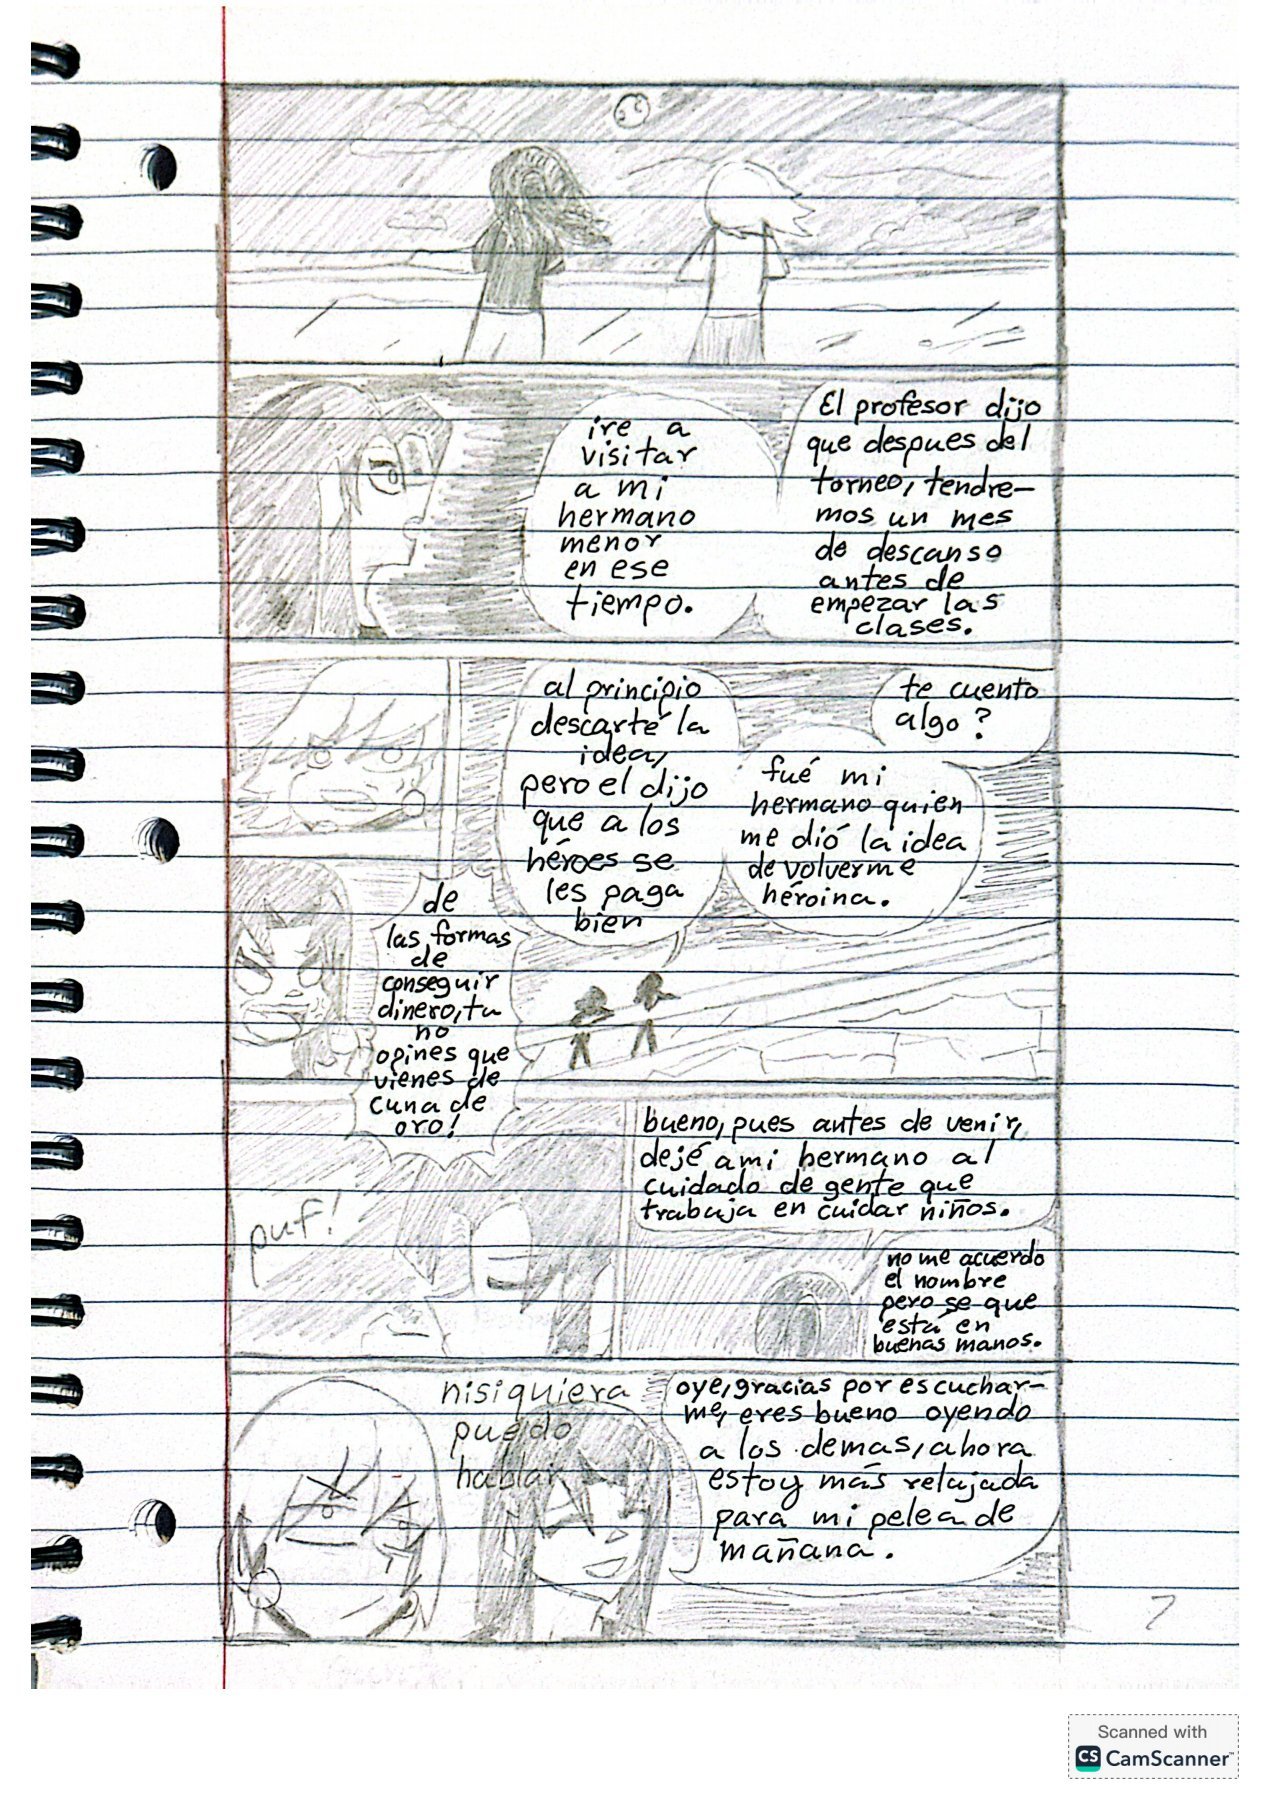 El profesor dijo
que despues del
torneo, tendre-
mos un mes
de descanso
antes de
empezar las
clases.
ire a
visitar
a mi
hermano
menor
en ese
tiempo.
te cuento
algo?
fué mi
hermano quien
me dió la idea
de volverme
héroina.
al principio
descarté la
idea,
pero el dijo
que a los
héroes se
les paga
bien
de
las formas
de
conseguir
dinero, tu
no
opines que
vienes de
cuna de
oro!
bueno, pues antes de venir,
dejé a mi hermano al
cuidado de gente que
trabaja en cuidar niños.
no me acuerdo
el nombre
pero se que
está en
buenas manos.
puf!
oye, gracias por escuchar-
me, eres bueno oyendo
a los demas, ahora
estoy más relajada
para mi pelea de
mañana.
nisiquiera
puedo
hablar
7
Scanned with
CS CamScanner